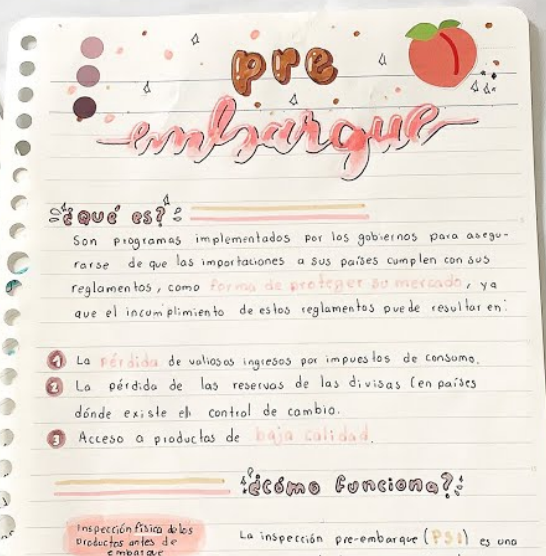 pre
embarque
¿Qué es?
Son programas implementados por los gobiernos para asegu-
rarse de que las importaciones a sus países cumplen con sus
reglamentos, como forma de proteger su mercado, ya
que el incumplimiento de estos reglamentos puede resultar en:
1 La pérdida de valiosos ingresos por impuestos de consumo.
2 La pérdida de las reservas de las divisas (en países
dónde existe el control de cambio.
3 Acceso a productos de baja calidad.
¿cómo funciona?
Inspección física de los
productos antes de
embarque
La inspección pre-embarque (PSI) es una